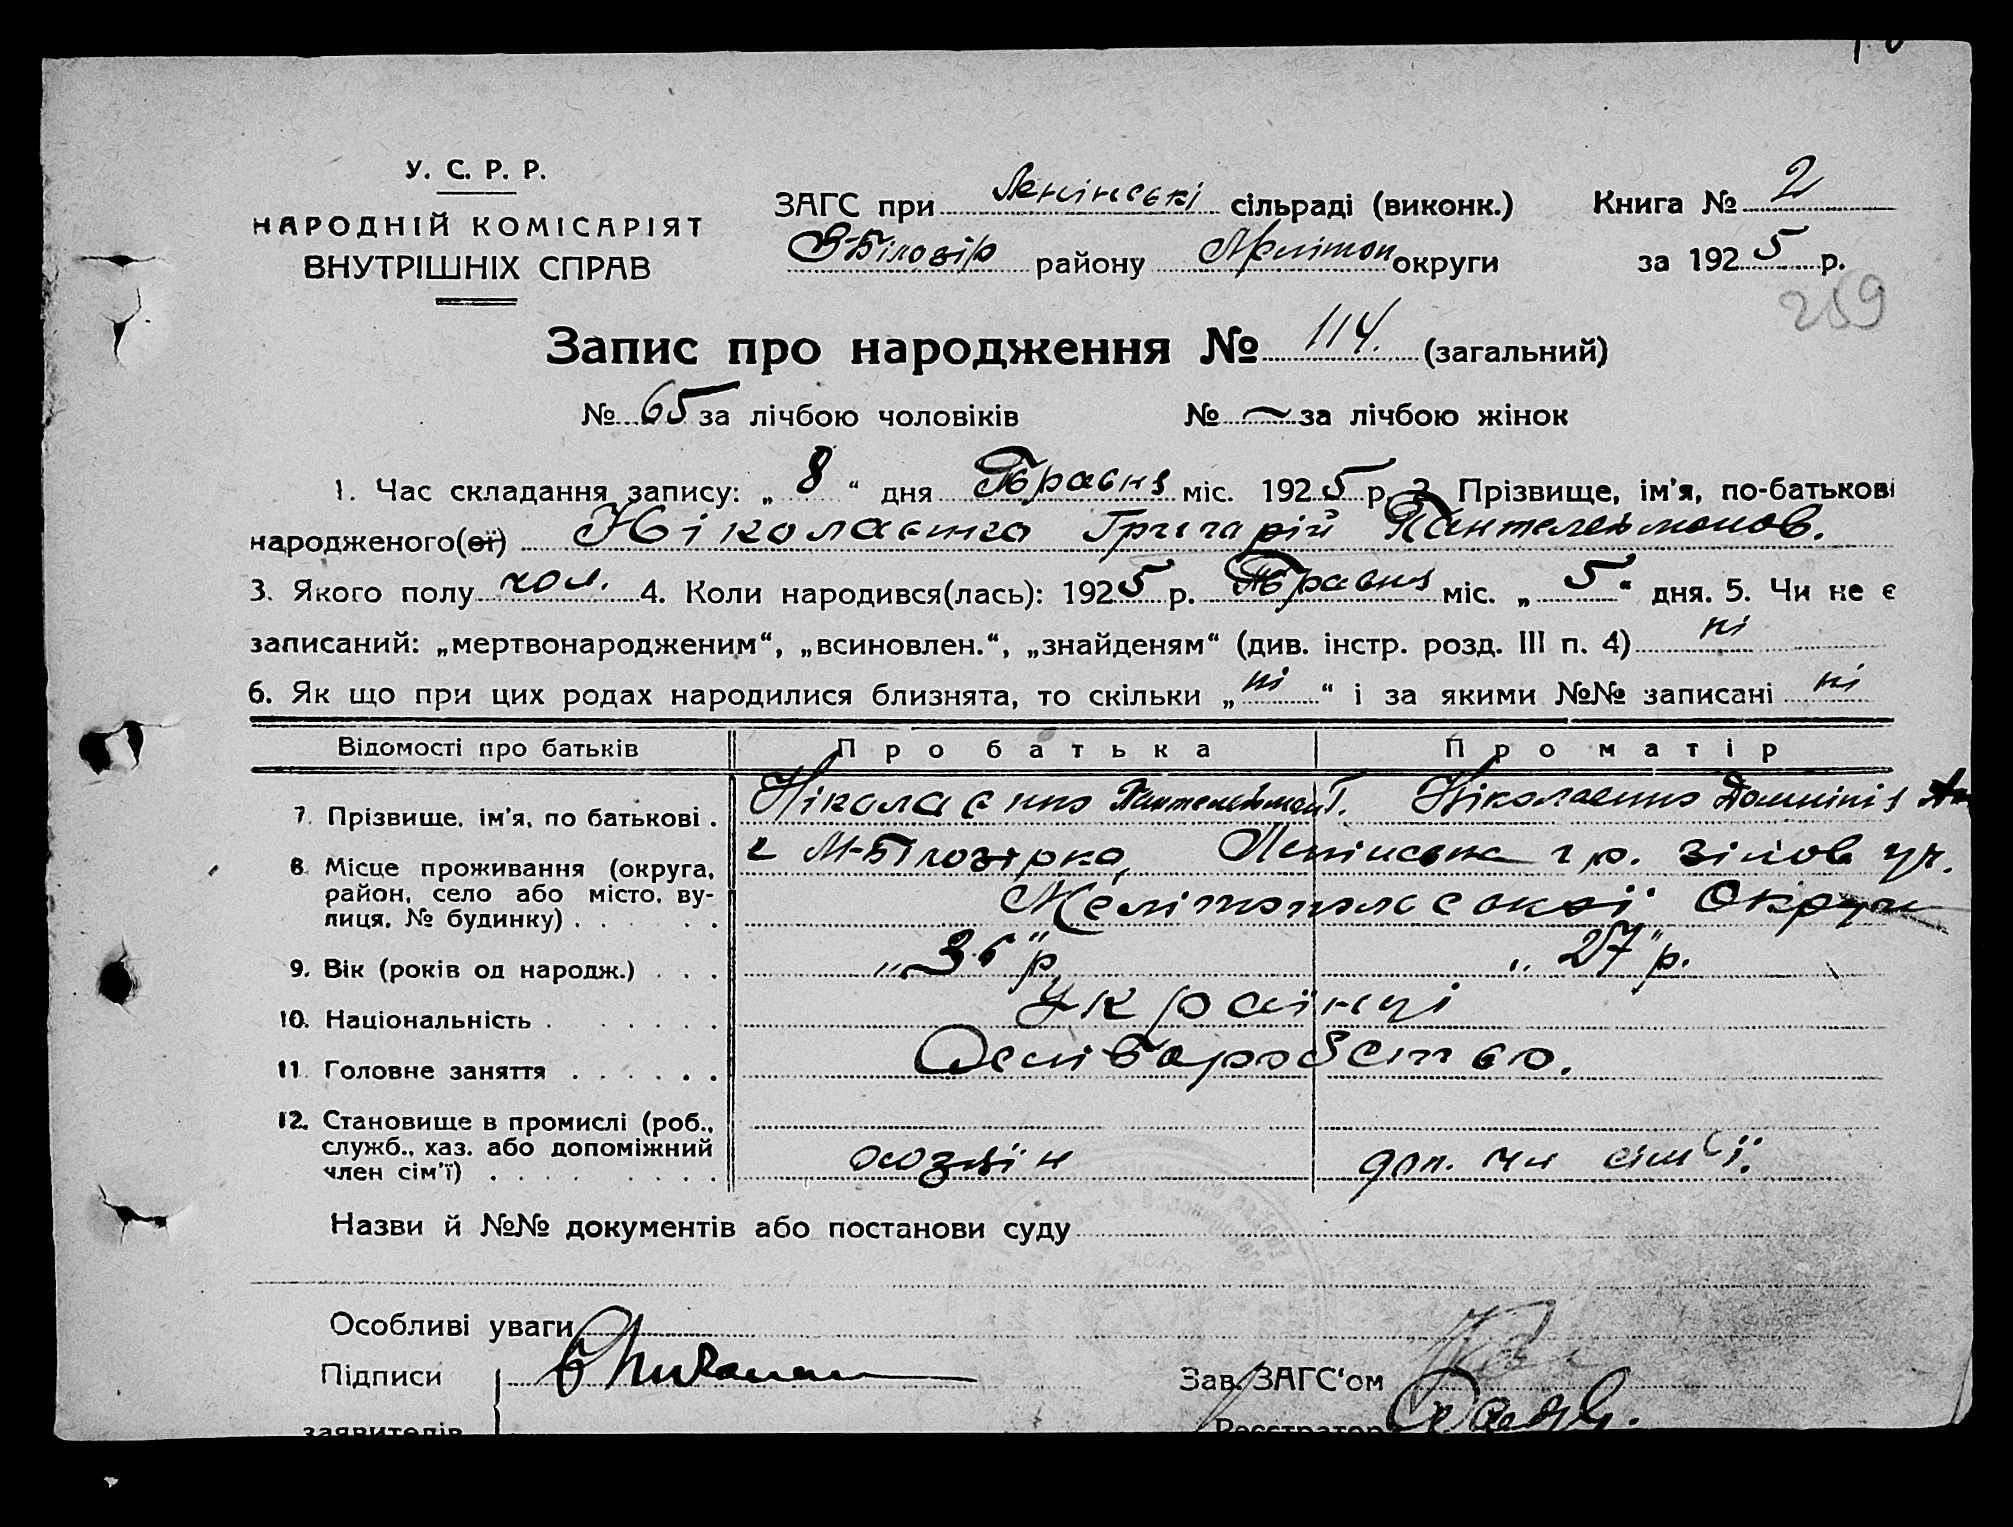 У. С. Р. Р.
НАРОДНІЙ КОМІСАРІЯТ
ВНУТРІШНІХ СПРАВ
ЗАГС при Ленінські сільраді (виконк.)
В-Білозір району Меліtoп округи
Книга № 2
за 1925 р.
259
Запис про народження № 114. (загальний)
№ 65 за лічбою чоловіків № — за лічбою жінок
1. Час складання запису: „ 8 “ дня Травня міс. 1925 р. 2. Прізвище, ім'я, по-батькові
народженого(ої) Ніколаєнко Григорій Пантелеймонов.
3. Якого полу чол. 4. Коли народився(лась): 1925 р. Травня міс. „ 5 “ дня. 5. Чи не є
записаний: „мертвонародженим“, „всиновлен.“, „знайденям“ (див. інстр. розд. III п. 4) ні
6. Як що при цих родах народилися близнята, то скільки „ ні “ і за якими №№ записані ні
Відомості про батьків Про батька Про матір
7. Прізвище, ім'я, по батькові . Ніколаєнко Пантелеймон Г. Ніколаенко Домникія
8. Місце проживання (округа, район, село або місто, вулиця, № будинку) . . . . . с М-Білозірка, Ленінська
Мелітопольської Округи
9. Вік (років од народж.) . . . „ 36 “ р. „ 27 “ р.
10. Національність . . . . . . Українці
11. Головне заняття . . . . . . Хліборобство.
12. Становище в промислі (роб., служб., хаз. або допоміжний член сім'ї) . . . . . . . . хозяїн доп. чл сім'ї.
Назви й №№ документів або постанови суду
Особливі уваги
Підписи
заявителів
Зав. ЗАГС'ом
Реєстратор